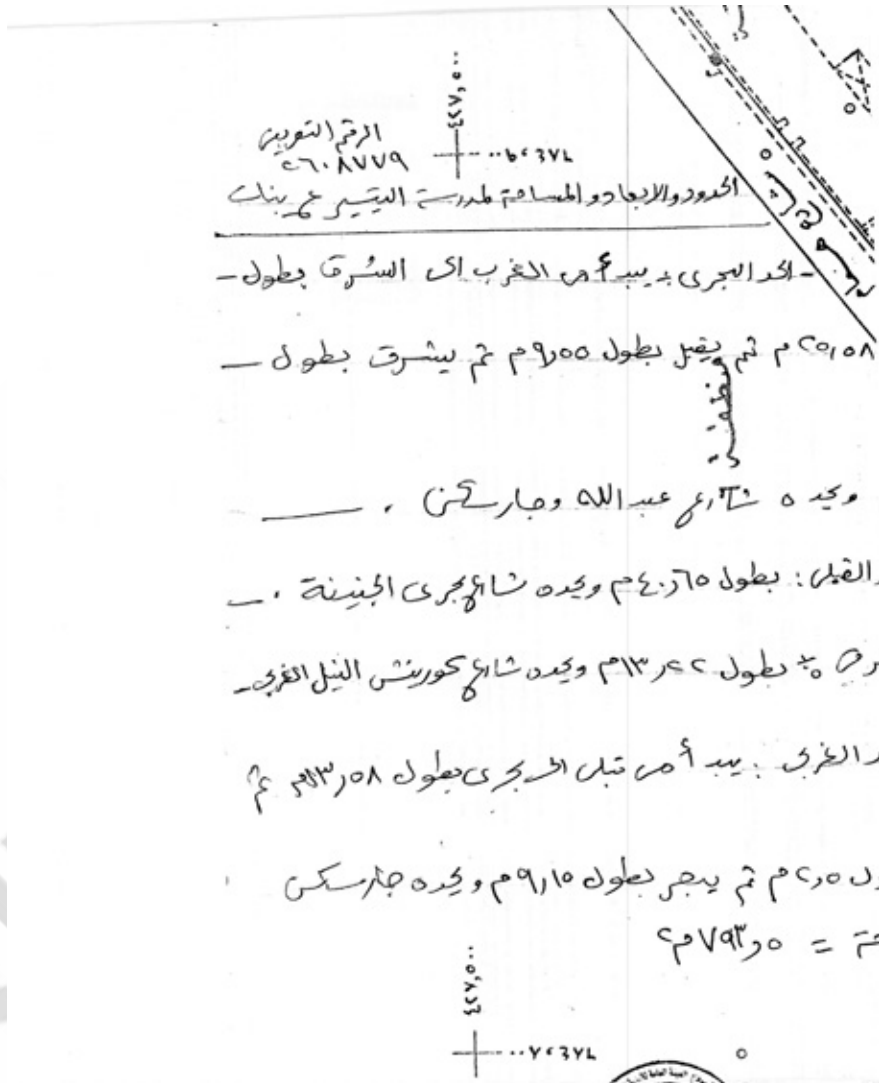 الرقم التعريفى
٢٦٠٨٧٧٩
٤٢٧,٥٠٠
الحدود والابعاد والمساحة لمدرسة التيسير ع بنات
- الحد البحرى : يبدأ من الغرب الى الشرق بطول -
٢٥,٥٨ م ثم يقبل بطول ٩,٥٥ م ثم يشرق بطول -
ويحده شارع عبد الله وجار سكنى . -
القبلى : بطول ٤٠,٦٥ م ويحده شارع مجرى الجنينة . -
بطول ١٣,٢٢ م ويحده شارع كورنيش النيل الغربى -
الغربى : يبدأ من قبلى الى بحرى بطول ١٣,٥٨ م ثم
٢,٥ م ثم يبحر بطول ٩,١٥ م ويحده جار سكن
= ٧٩٣,٥ م٢
٤٢٧,٥٠٠